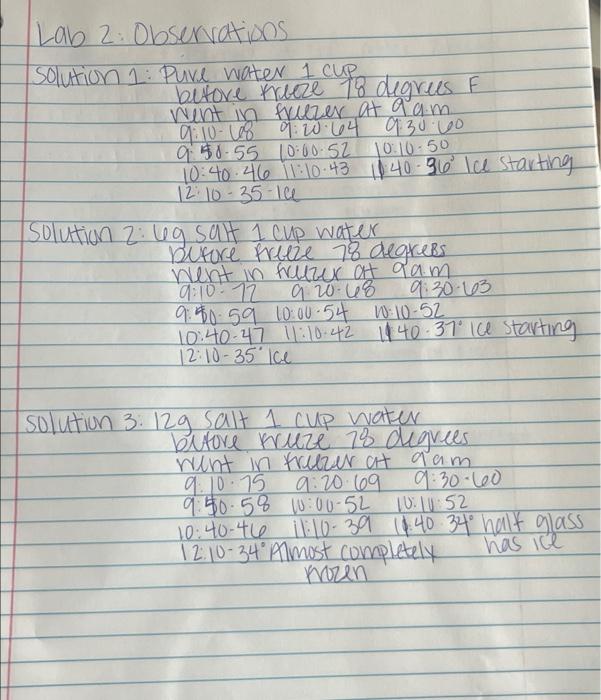 Lab 2: Observations
Solution 1: Pure water 1 cup
before freeze 78 degrees F
went in freezer at 9am
9:10-68 9:20-64 9:30-60
9:50-55 10:00-52 10:10-50
10:40-46 11:10-43 11:40-36° Ice starting
12:10-35-Ice
Solution 2: 6g salt 1 cup water
before freeze 78 degrees
went in freezer at 9am
9:10-72 9:20-68 9:30-63
9:50-59 10:00-54 10:10-52
10:40-47 11:10-42 11:40-37° Ice starting
12:10-35° Ice
Solution 3: 12g salt 1 cup water
before freeze 78 degrees
went in freezer at 9am
9:10-75 9:20-69 9:30-60
9:50-58 10:00-52 10:10-52
10:40-46 11:10-39 11:40 34° half glass
12:10-34° Almost completely has ice
frozen